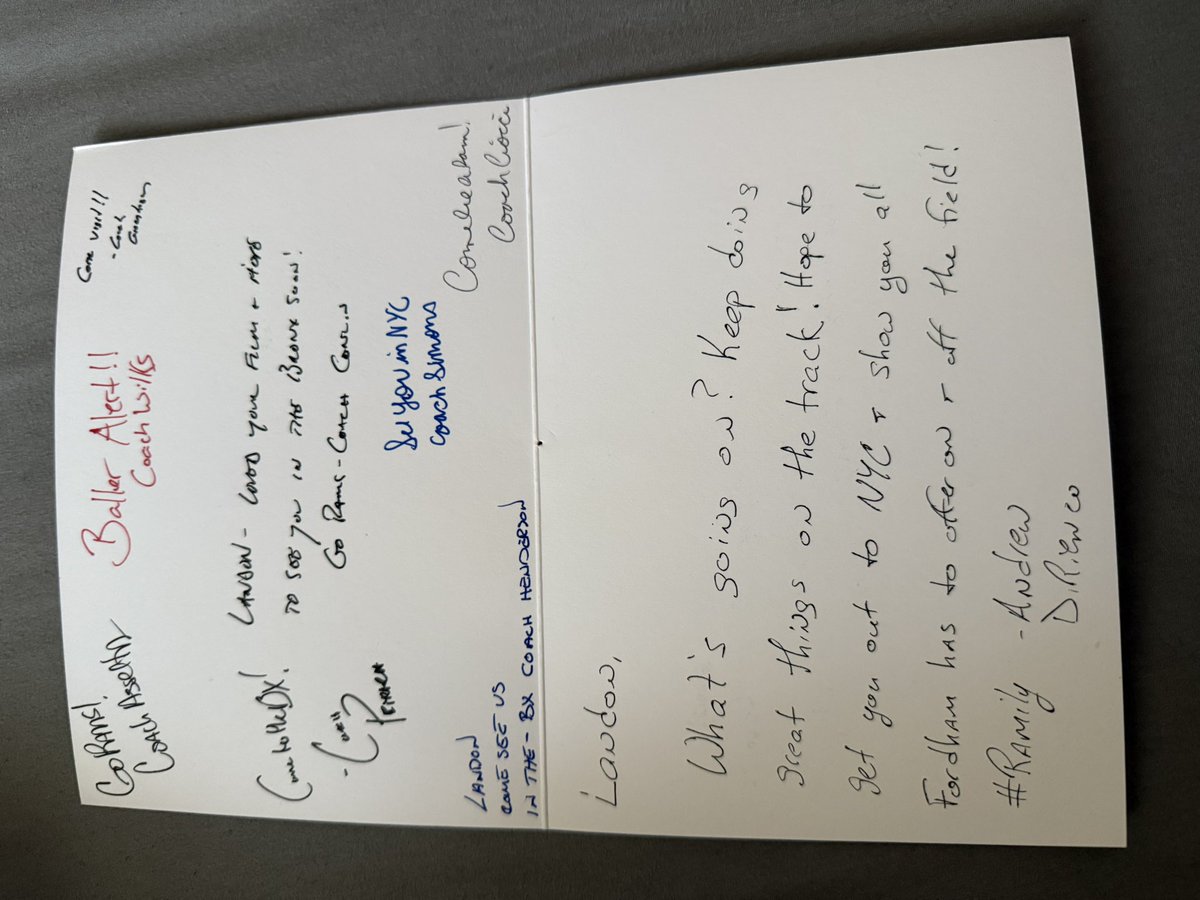 Go RAMS!
COACH
Baller Alert!!
Coach Wilks
Come visit!!
- Coach
Come to the BX!
- Coach
LANDON - LOVED YOUR FILM + HOPE
TO SEE YOU IN THE BRONX SOON!
GO RAMS - COACH CONLIN
See You in NYC
Coach Simmons
Come be a Ram!
Coach
LANDON
COME SEE US
IN THE - BX COACH HENDERSON
Landon,
What's going on? Keep doing
great things on the track! Hope to
get you out to NYC + show you all
Fordham has to offer on + off the field!
#RAMily - Andrew
DiRienco